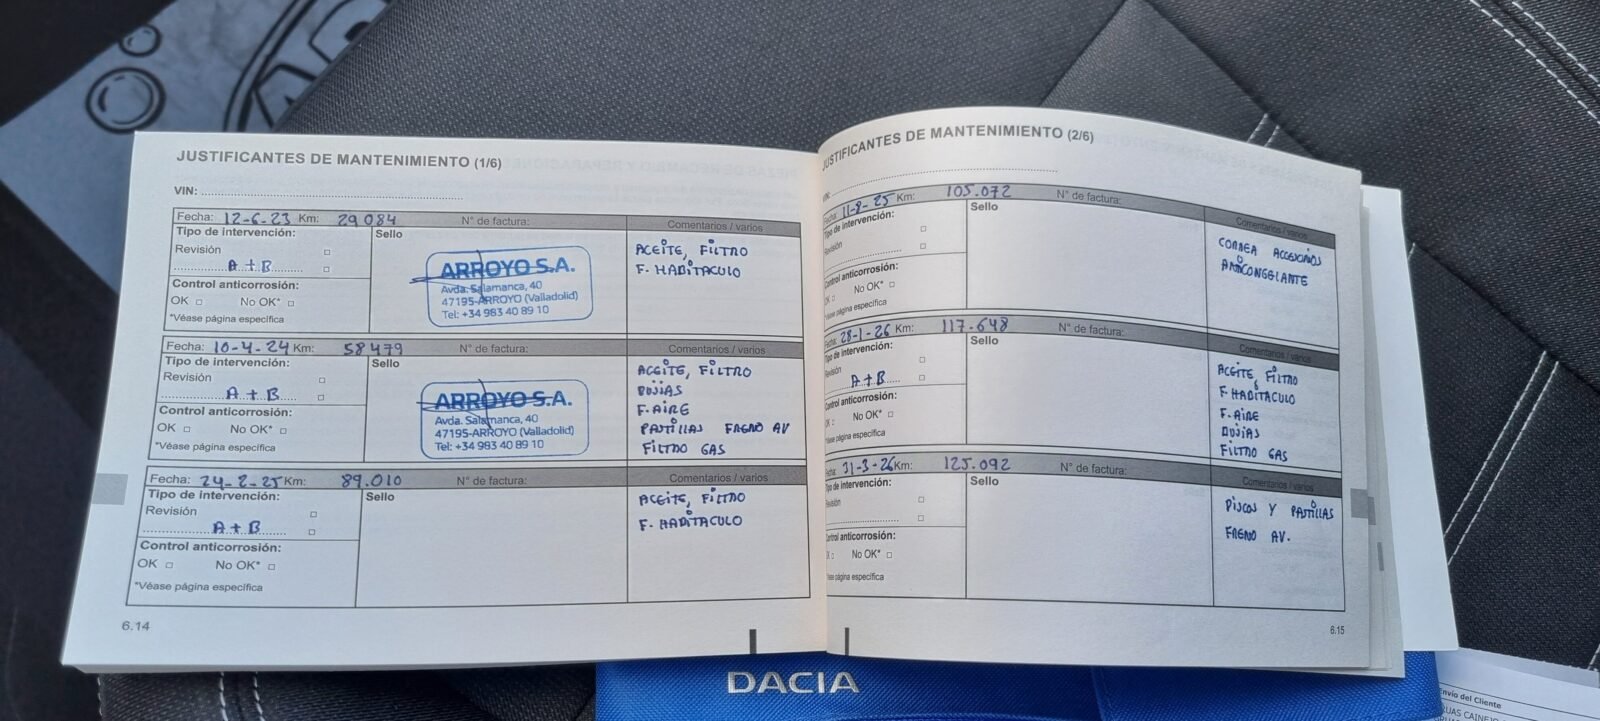 JUSTIFICANTES DE MANTENIMIENTO (1/6)
VIN:
Fecha: 12-6-23 Km: 29084 N° de factura:
Tipo de intervención:
Revisión
A+B
Control anticorrosión:
OK No OK*
*Véase página específica
Sello
ARROYO S.A.
Avda. Salamanca, 40
47195-ARROYO (Valladolid)
Tel: +34 983 40 89 10
Comentarios / varios
ACEITE, FILTRO
F. HABITACULO
Fecha: 10-4-24 Km: 58479 N° de factura:
Tipo de intervención:
Revisión
A+B
Control anticorrosión:
OK No OK*
*Véase página específica
Sello
ARROYO S.A.
Avda. Salamanca, 40
47195-ARROYO (Valladolid)
Tel: +34 983 40 89 10
Comentarios / varios
ACEITE, FILTRO
BUJIAS
F. AIRE
PASTILLAS FRENO AV
FILTRO GAS
Fecha: 24-2-25 Km: 89.010 N° de factura:
Tipo de intervención:
Revisión
A+B
Control anticorrosión:
OK No OK*
*Véase página específica
Sello
Comentarios / varios
ACEITE, FILTRO
F. HABITACULO
6.14
JUSTIFICANTES DE MANTENIMIENTO (2/6)
VIN:
Fecha: 11-8-25 Km: 105.072 N° de factura:
Tipo de intervención:
Revisión
Control anticorrosión:
OK No OK*
*Véase página específica
Sello
Comentarios / varios
CORREA ACCESORIOS
ANTICONGELANTE
Fecha: 28-1-26 Km: 117.648 N° de factura:
Tipo de intervención:
Revisión
A+B
Control anticorrosión:
No OK*
*Véase página específica
Sello
Comentarios / varios
ACEITE, FILTRO
F. HABITACULO
F. AIRE
BUJIAS
FILTRO GAS
Fecha: 31-3-26 Km: 125.092 N° de factura:
Tipo de intervención:
Revisión
Control anticorrosión:
No OK*
*Véase página específica
Sello
Comentarios / varios
DISCOS Y PASTILLAS
FRENO AV.
6.15
DACIA
Envío del Cliente